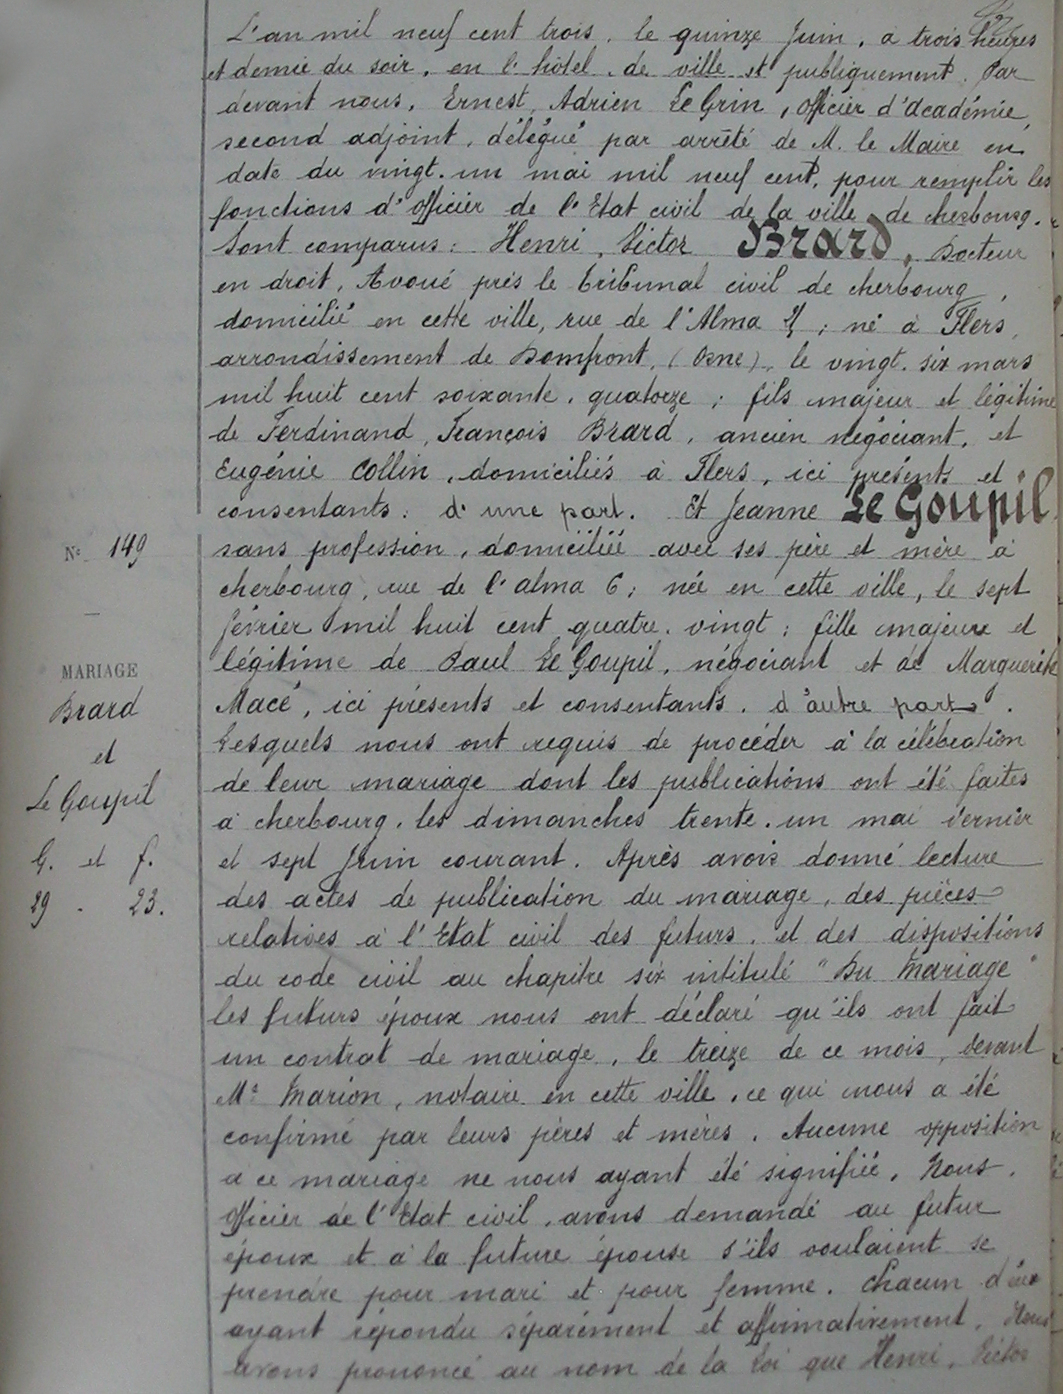 L'an mil neuf cent trois, le quinze Juin, a trois heures
et demie du soir, en l'hôtel de ville et publiquement. Par
devant nous, Ernest, Adrien Le Grin, officier d'académie,
second adjoint, délégué par arrêté de M. le Maire en
date du vingt-un mai mil neuf cent, pour remplir les
fonctions d'officier de l'Etat civil de la ville de cherbourg.
Sont comparus: Henri, Victor Brard, Docteur
en droit, Avoué près le tribunal civil de cherbourg,
domicilié en cette ville, rue de l'Alma ; né à Flers,
arrondissement de Domfront, (Orne), le vingt-six mars
mil huit cent soixante-quatorze; fils majeur et légitime
de Ferdinand, François Brard, ancien négociant, et
Eugénie Collin, domiciliés à Flers, ici présents et
consentants; d'une part. Et Jeanne Le Goupil
N° 149
sans profession, domiciliée avec ses père et mère à
cherbourg, rue de l'alma 6; née en cette ville, le sept
février mil huit cent quatre-vingt; fille majeure et
MARIAGE
Brard
et
Le Goupil
G. et f.
29 - 23.
légitime de Paul Le Goupil, négociant et de Marguerite
Macé, ici présents et consentants. d'autre part.
Lesquels nous ont requis de procéder à la célébration
de leur mariage dont les publications ont été faites
à cherbourg, les dimanches trente-un mai dernier
et sept Juin courant. Après avoir donné lecture
des actes de publication du mariage, des pièces
relatives à l'Etat civil des futurs, et des dispositions
du code civil au chapitre six intitulé "Du Mariage"
les futurs époux nous ont déclaré qu'ils ont fait
un contrat de mariage, le treize de ce mois, devant
Me Marion, notaire en cette ville, ce qui nous a été
confirmé par leurs pères et mères. Aucune opposition
a ce mariage ne nous ayant été signifiée, Nous,
officier de l'Etat civil, avons demandé au futur
époux et à la future épouse s'ils voulaient se
prendre pour mari et pour femme. Chacun d'eux
ayant répondu séparément et affirmativement, Nous
avons prononcé au nom de la Loi que Henri, Victor